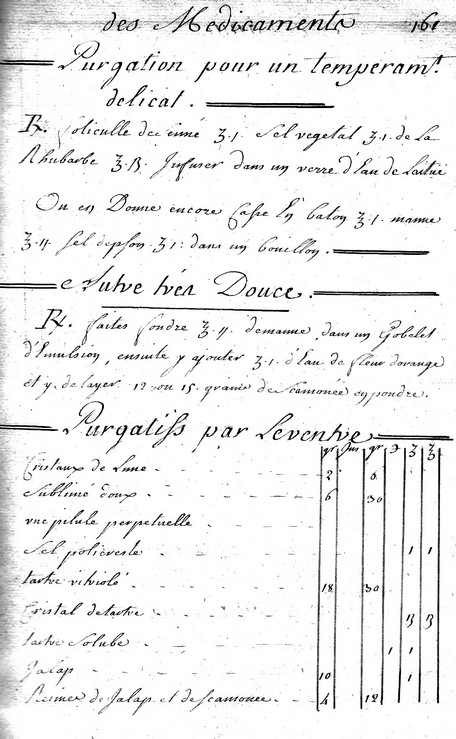 des Medicaments 161
Purgation pour un temperamt.
delicat.
℞. foliculle de ʒ.1. Sel vegetal ʒ.1. de la
Rhubarbe ʒ.ß. Infuser dans un verre d'Eau de Laitue
On en Donne encore Casse En baton ʒ.1. manne
ʒ.11. Sel depson ʒ.1: dans un bouillon.
Autre trés Douce.
℞. faites fondre ʒ.11. demanne dans un Gobelet
d'Emulsion, ensuite y ajouter ʒ.1. d'Eau de fleur dorange
et y delayer 12 ou 15. grains de Scamonée en poudre.
Purgatifs par Leventre
gr gr ℈ ʒ ʒ
Cristaux de Lune - 2 6
Sublimé doux - 6 30
une pilule perpetuelle
Sel policreste 1 1
tartre vitriolé 18 30
Cristal detartre ß ß
tartre Solube 1 1
Jalap 10 1
Resine de Jalap et de Scamonée 4 12